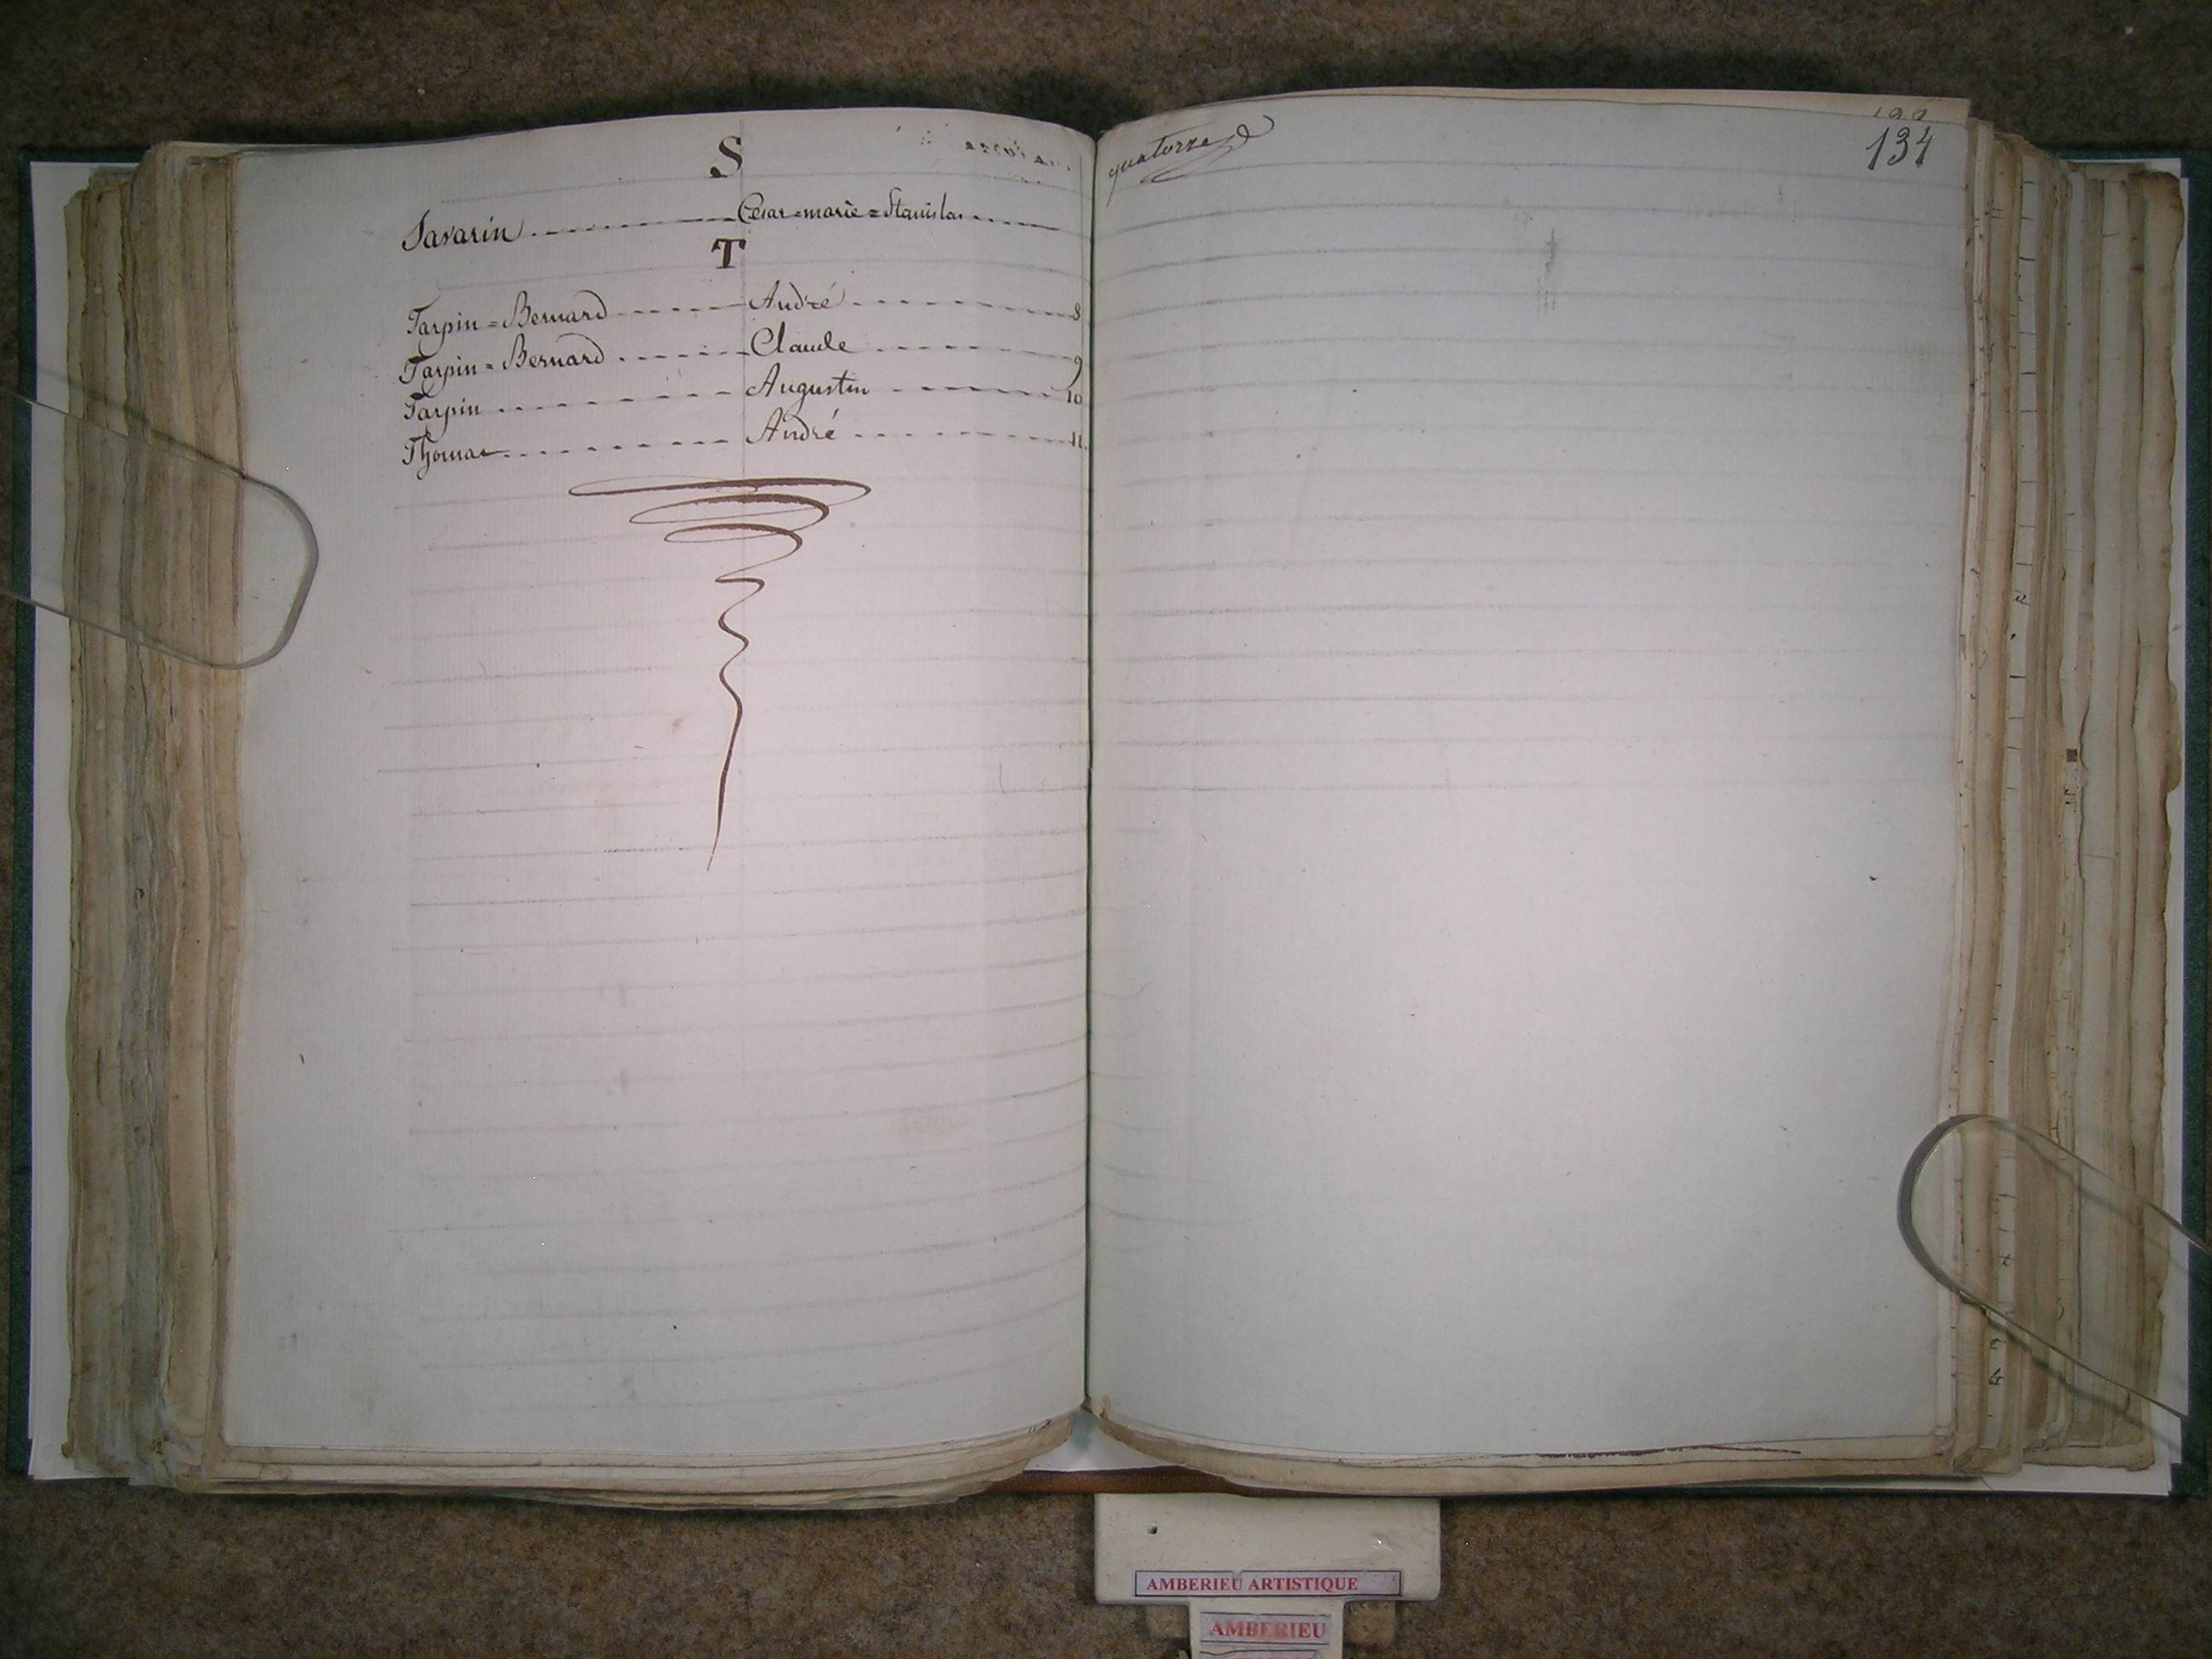 S
Savarin . . . . . . . . . . Cesar=marie=Stanislas . . . . .
T
Tarpin=Bernard - - - - - - André - - - - - - - - 8
Tarpin=Bernard - - - - - - Claude - - - - - - - 9
Tarpin - - - - - - - - - - Augustin - - - - - - - 10
Thomas - - - - - - - - - - André - - - - - - - - 11.
quatorze
134
AMBERIEU ARTISTIQUE
AMBERIEU